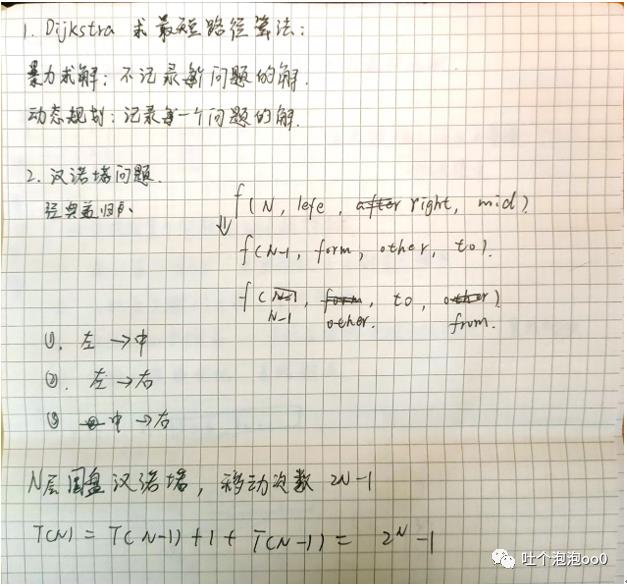 1. Dijkstra 求最短路径算法:
暴力求解: 不记录每个问题的解.
动态规划: 记录每一个问题的解.
2. 汉诺塔问题.
经典
f(N, left, after right, mid).
⇓
f(N-1, form, other, to).
f(N-1, form, to, other)
N-1 other. from.
①. 左→中
②. 左→右
③ 中→右
N层圆盘汉诺塔, 移动次数 2N-1
T(N) = T(N-1)+1+T(N-1) = 2^N-1
吐个泡泡oo0